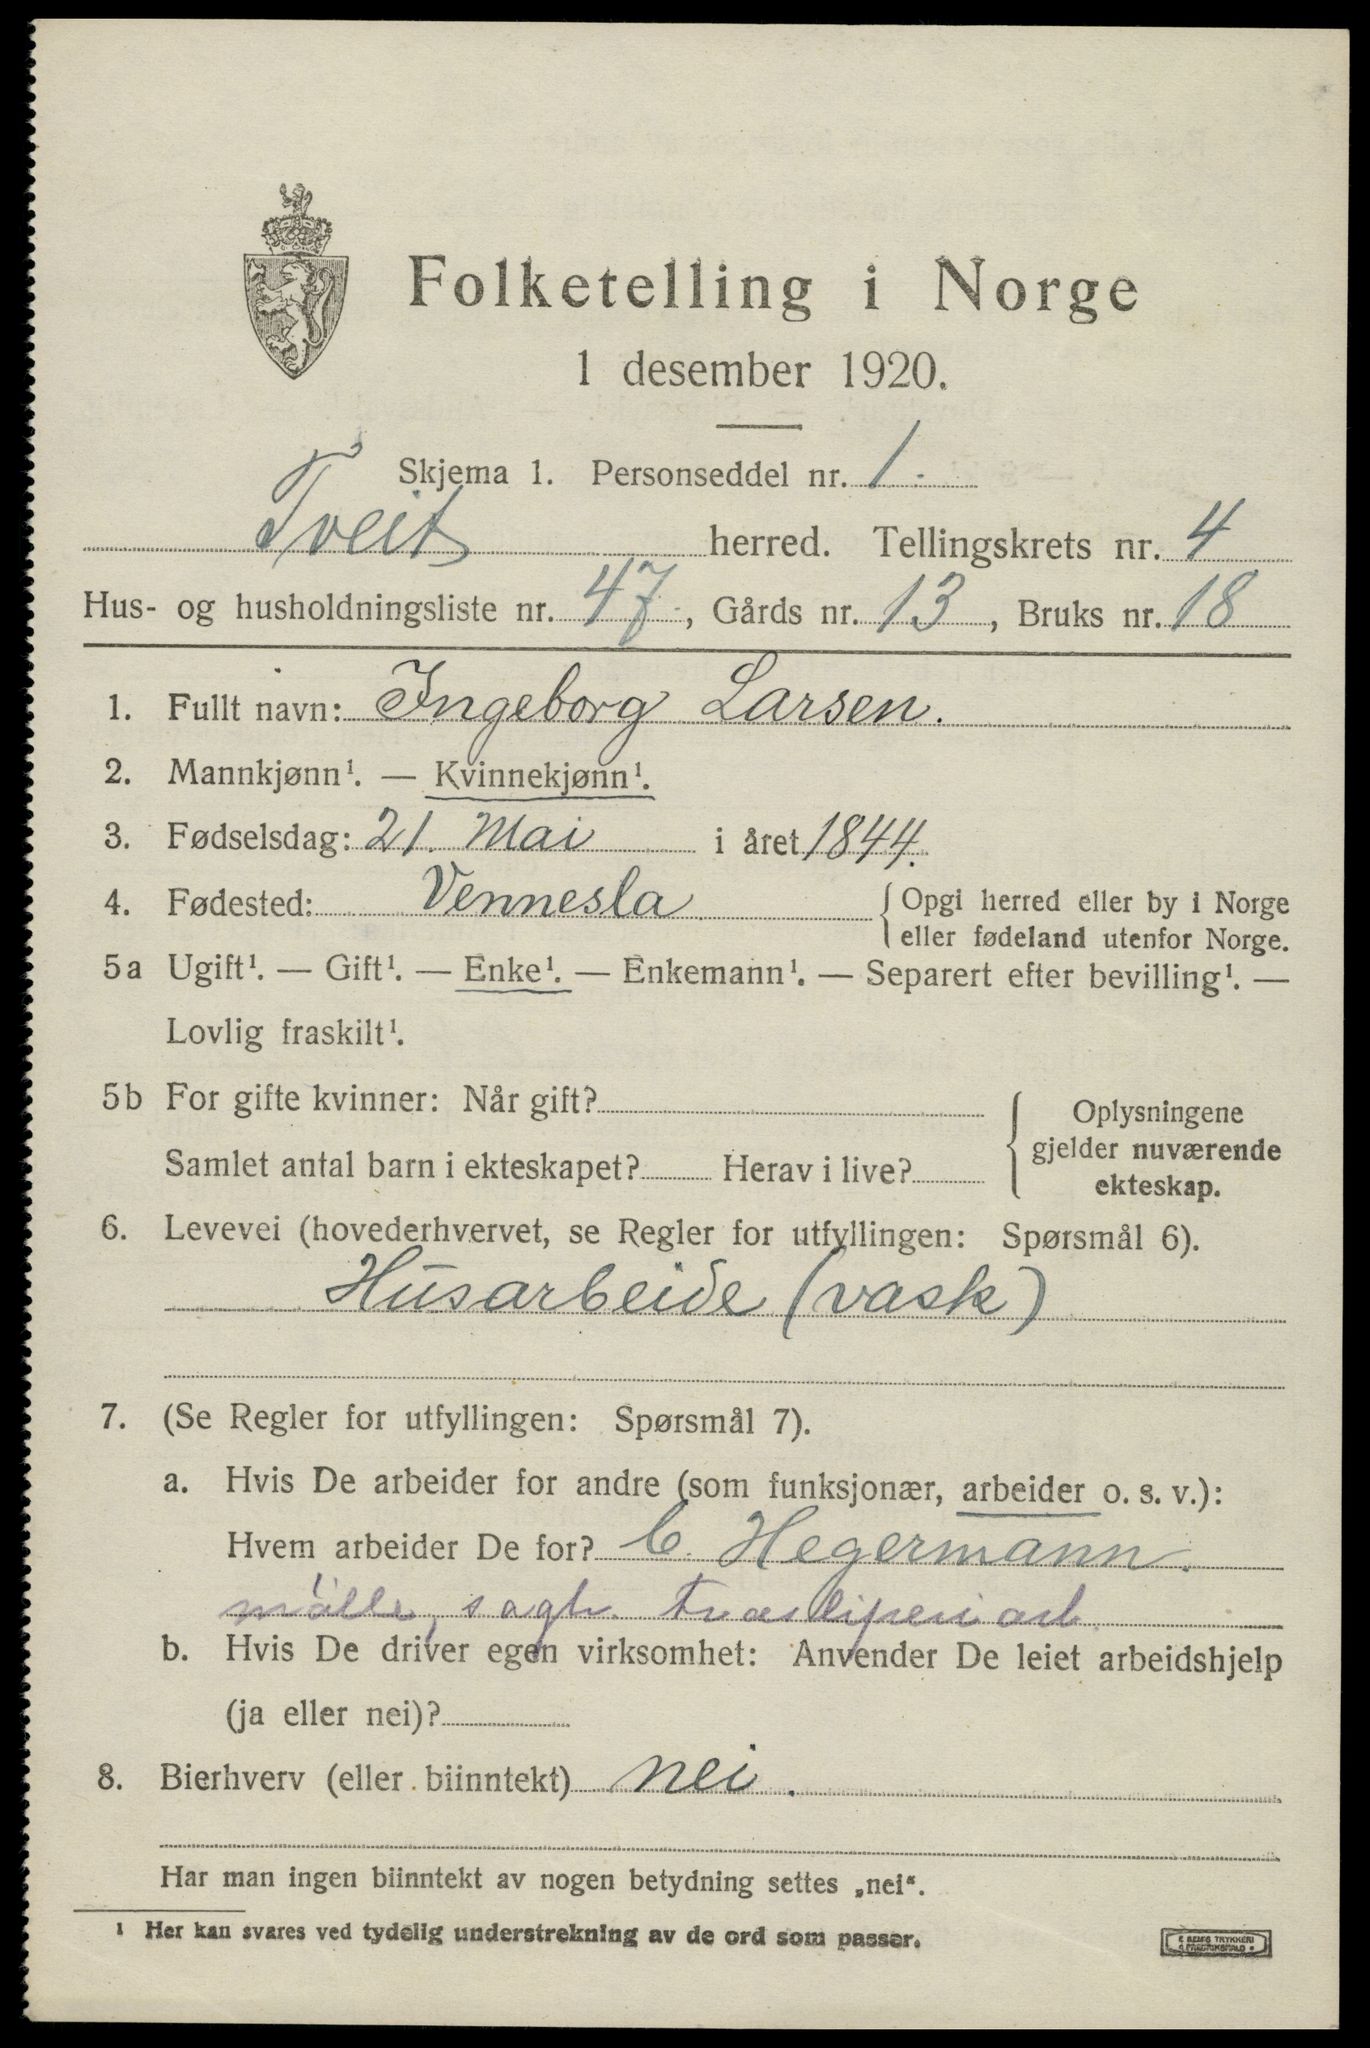 Folketelling i Norge
1 desember 1920.
Skjema 1. Personseddel nr. 1.
Tveit herred. Tellingskrets nr. 4
Hus- og husholdningsliste nr. 47, Gårds nr. 13, Bruks nr. 18
1. Fullt navn: Ingeborg Larsen.
2. Mannkjønn¹. — Kvinnekjønn¹.
3. Fødselsdag: 21. Mai i året 1844.
4. Fødested: Vennesla { Opgi herred eller by i Norge
eller fødeland utenfor Norge.
5a Ugift¹. — Gift¹. — Enke¹. — Enkemann¹. — Separert efter bevilling¹. —
Lovlig fraskilt¹.
5b For gifte kvinner: Når gift?
Samlet antal barn i ekteskapet? Herav i live?
{ Oplysningene
gjelder nuværende
ekteskap.
6. Levevei (hovederhvervet, se Regler for utfyllingen: Spørsmål 6).
Husarbeide (vask)
7. (Se Regler for utfyllingen: Spørsmål 7).
a. Hvis De arbeider for andre (som funksjonær, arbeider o. s. v.):
Hvem arbeider De for? C. Hegermann.
mölle, sagbr. træsliperiarb.
b. Hvis De driver egen virksomhet: Anvender De leiet arbeidshjelp
(ja eller nei)?
8. Bierhverv (eller biinntekt) nei.
Har man ingen biinntekt av nogen betydning settes „nei“.
¹ Her kan svares ved tydelig understrekning av de ord som passer.